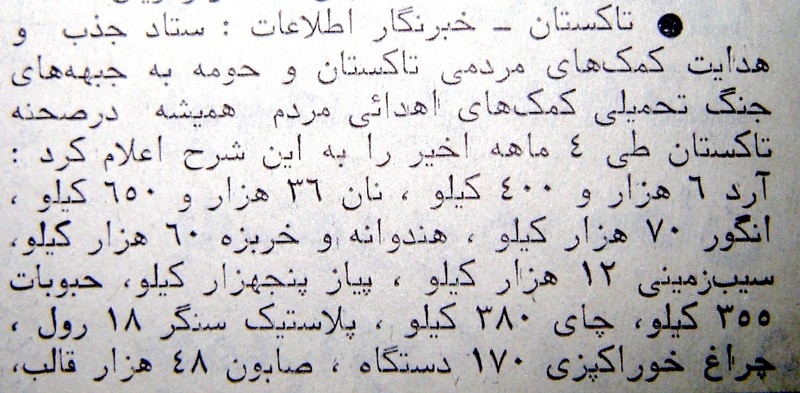 ● تاکستان ـ خبرنگار اطلاعات : ستاد جذب و
هدایت کمک‌های مردمی تاکستان و حومه به جبهه‌های
جنگ تحمیلی کمک‌های اهدائی مردم همیشه درصحنه
تاکستان طی ٤ ماهه اخیر را به این شرح اعلام کرد :
آرد ٦ هزار و ٤٠٠ کیلو ، نان ٣٦ هزار و ٦٥٠ کیلو ،
انگور ٧٠ هزار کیلو ، هندوانه و خربزه ٦٠ هزار کیلو،
سیب‌زمینی ١٢ هزار کیلو ، پیاز پنجهزار کیلو، حبوبات
٣٥٥ کیلو، چای ٣٨٠ کیلو ، پلاستیک سنگر ١٨ رول ،
چراغ خوراکپزی ١٧٠ دستگاه ، صابون ٤٨ هزار قالب،